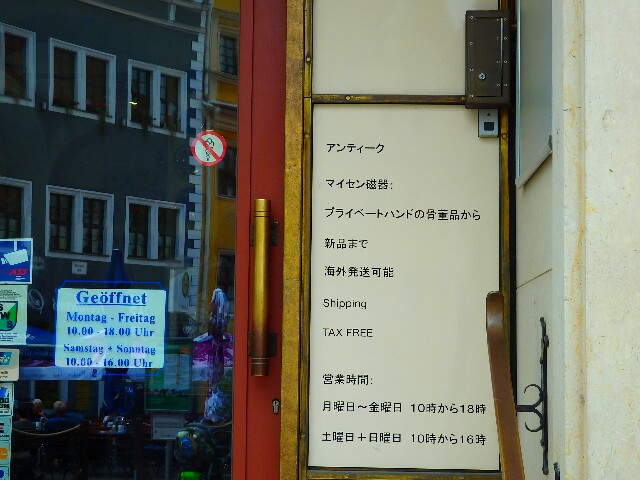 Geöffnet
Montag - Freitag
10.00 - 18.00 Uhr
Samstag + Sonntag
10.00 - 16.00 Uhr
アンティーク
マイセン磁器:
プライベートハンドの骨董品から
新品まで
海外発送可能
Shipping
TAX FREE
営業時間:
月曜日～金曜日 10時から18時
土曜日＋日曜日 10時から16時